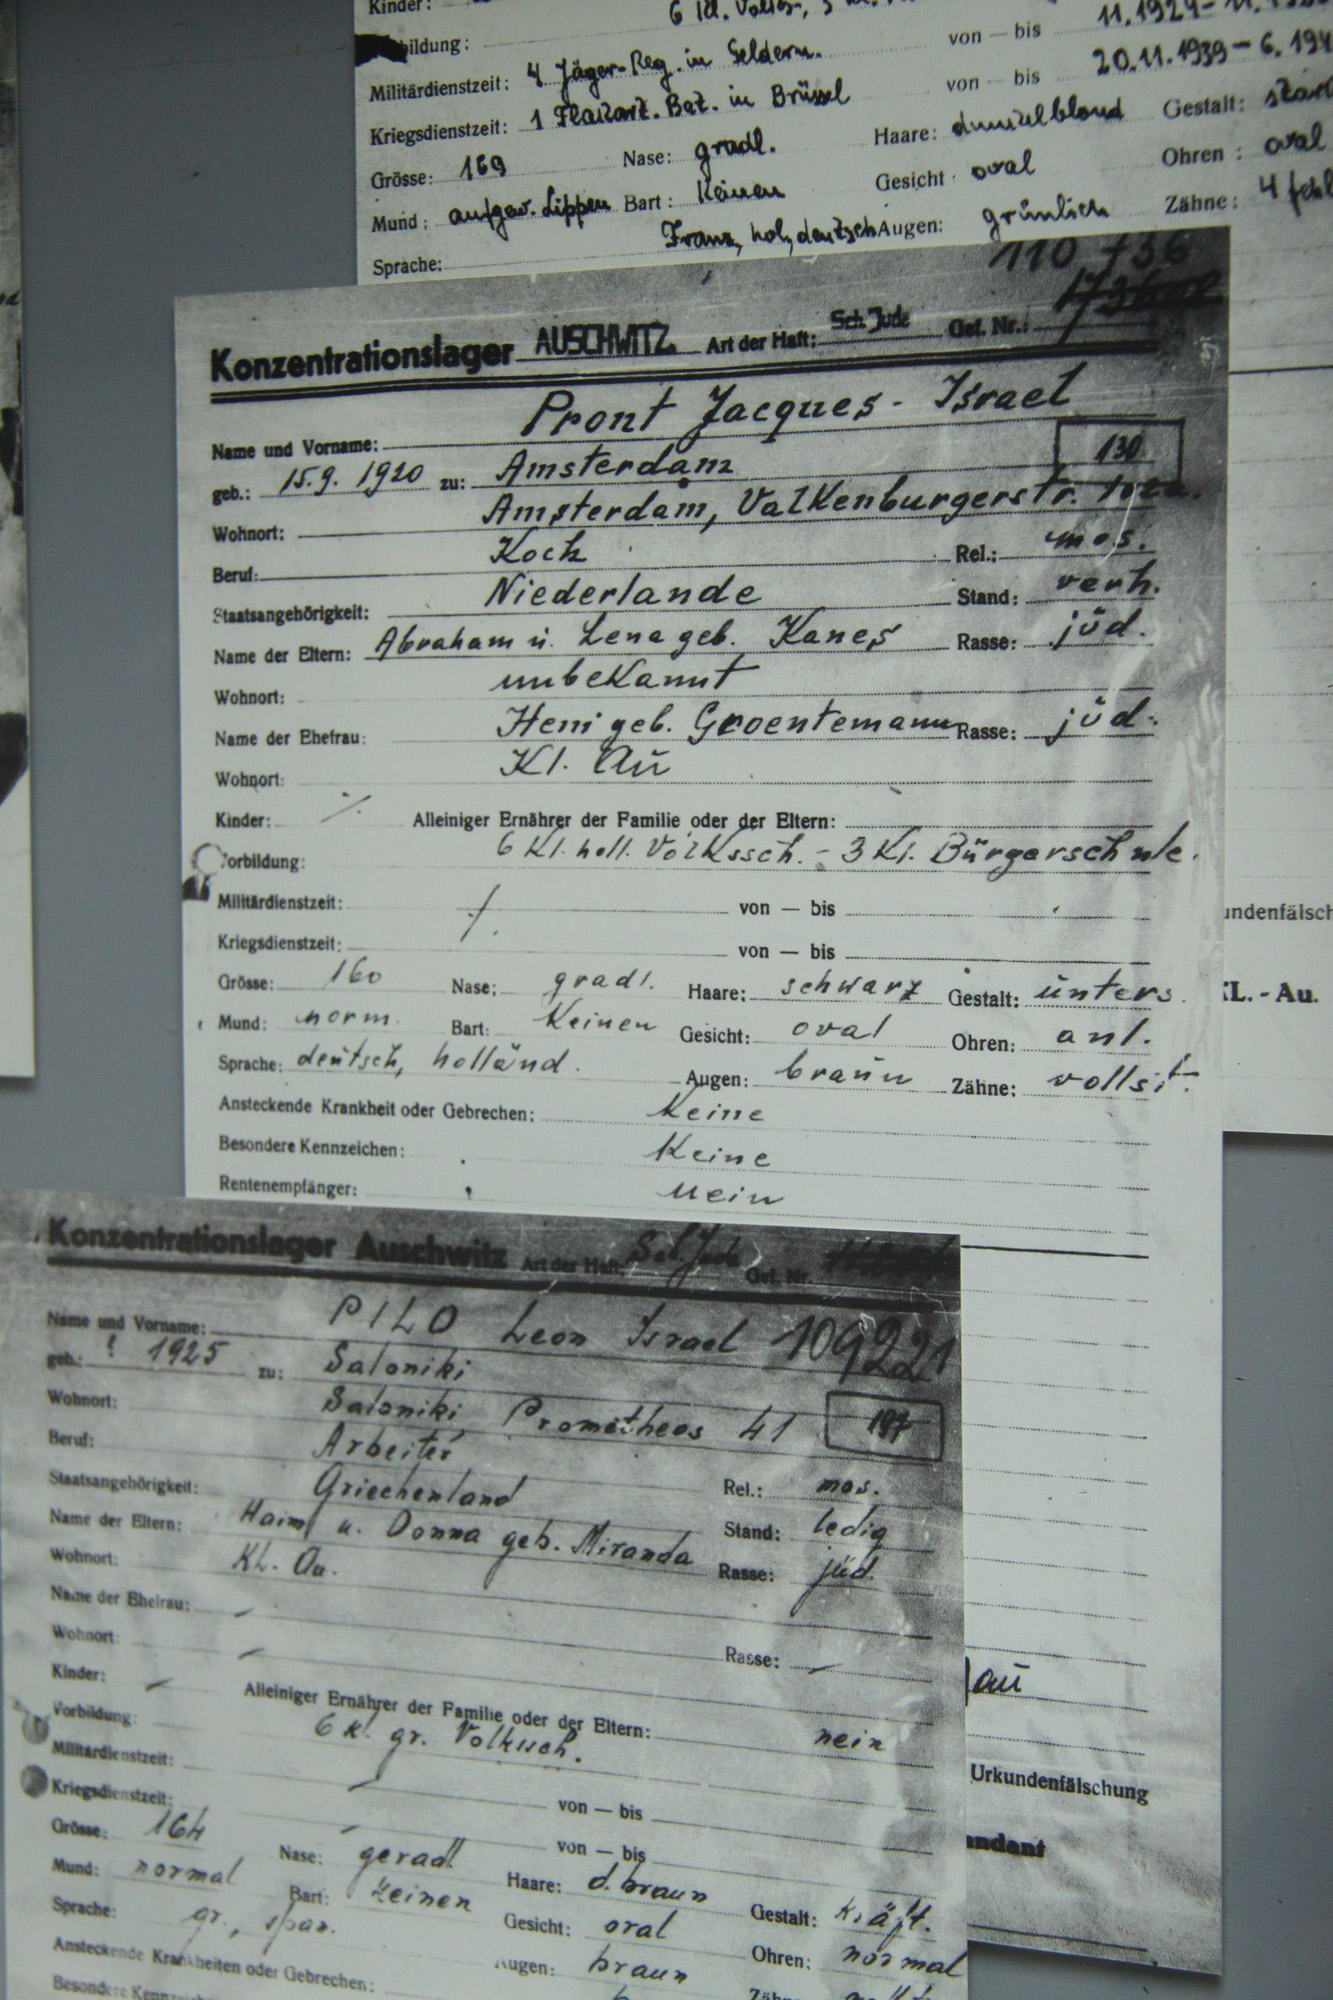 Kinder:
bildung:
von — bis
Militärdienstzeit: 4 Jäger-Reg. in Geldern. von — bis 20.11.1939 – 6.
Kriegsdienstzeit: 1 Flakart. Bat. in Brüssel
Grösse: 169 Nase: gradl. Haare: dunkelblond Gestalt:
Mund: aufgew. Lippen Bart: Keinen Gesicht: oval Ohren: oval
Sprache: Franz, hol, deutsch Augen: grünlich Zähne: 4
110 736
Konzentrationslager AUSCHWITZ. Art der Haft: Sch. Jude Gef. Nr.:
Name und Vorname: Pront Jacques - Israel
130
geb.: 15.9. 1920 zu: Amsterdam
Wohnort: Amsterdam, Valkenburgerstr.
Beruf: Koch Rel.: mos.
Staatsangehörigkeit: Niederlande Stand: verh.
Name der Eltern: Abraham u. Lena geb. Kanes Rasse: jüd.
Wohnort: unbekannt
Name der Ehefrau: Heni geb. Groentemann Rasse: jüd.
Wohnort: Kl. Au
Kinder: Alleiniger Ernährer der Familie oder der Eltern:
Vorbildung: 6 Kl. holl. Volkssch. - 3 Kl. Bürgerschule.
Militärdienstzeit: von — bis
Kriegsdienstzeit: von — bis
Grösse: 160 Nase: gradl. Haare: schwarz Gestalt: unters.
Mund: norm. Bart: Keinen Gesicht: oval Ohren: anl.
Sprache: deutsch, holländ. Augen: braun Zähne: vollst.
Ansteckende Krankheit oder Gebrechen: Keine
Besondere Kennzeichen: Keine
Rentenempfänger: Nein
undenfälsch
KL.-Au.
Konzentrationslager Auschwitz Art der Haft: Sch. Jude Gef. Nr.
Name und Vorname: PILO Leon Israel 109221
geb.: ? 1925 zu: Saloniki
Wohnort: Saloniki, Prometheos 41
197
Beruf: Arbeiter
Staatsangehörigkeit: Griechenland Rel.: mos.
Name der Eltern: Haim u. Donna geb. Miranda Stand: ledig
Wohnort: KL. Au. Rasse: jüd.
Name der Ehefrau:
Wohnort: Rasse:
Kinder: Alleiniger Ernährer der Familie oder der Eltern: nein
Vorbildung: 6 kl. gr. Volkssch.
Militärdienstzeit: von — bis
Kriegsdienstzeit: von — bis
Grösse: 164 Nase: geradl Haare: d. braun Gestalt: kräft.
Mund: normal Bart: keinen Gesicht: oval Ohren: normal
Sprache: gr., span. Augen: braun
Ansteckende Krankheiten oder Gebrechen:
Besondere
au
Urkundenfälschung
andant